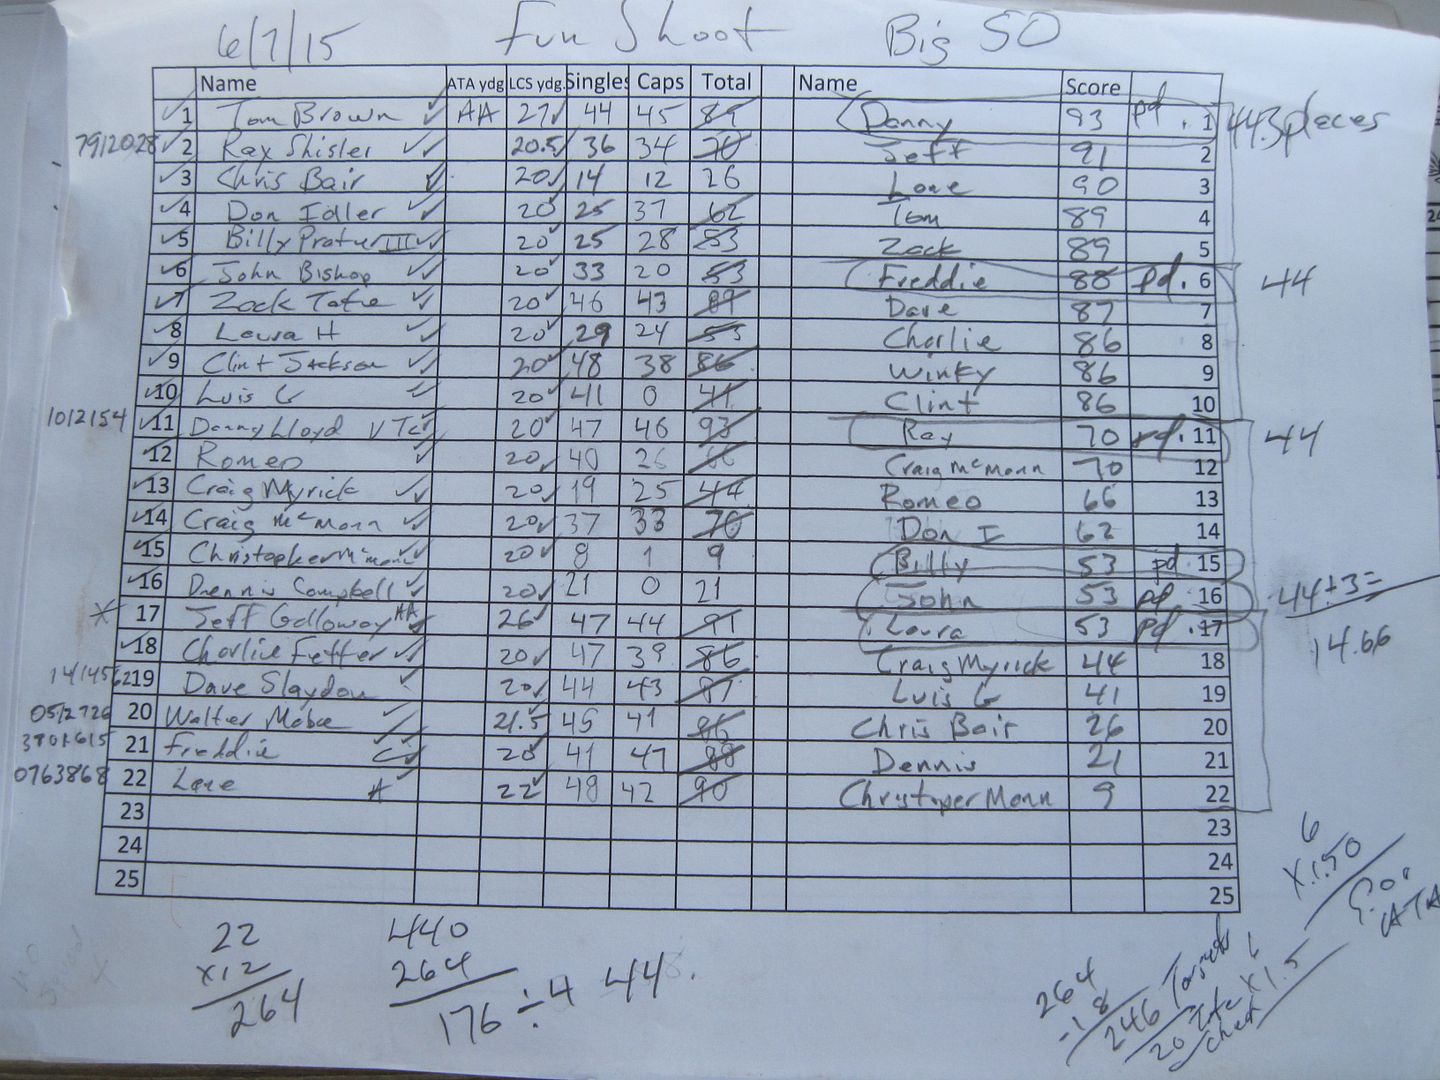 6/7/15 Fun Shoot Big 50
Name ATA ydg LCS ydg. Singles Caps Total Name Score
1 Tom Brown AA 27 44 45 89 Danny 93 pd. 1 44 3 places
7912028 2 Ray Shisler 20.5 36 34 70 Jeff 91 2
3 Chris Bair 20 14 12 26 Lane 90 3
4 Don Idler 20 25 37 62 Tom 89 4
5 Billy III 20 25 28 53 Zack 89 5
6 John Bishop 20 33 20 53 Freddie 88 pd. 6 44
7 Zack 20 46 43 89 Dave 87 7
8 Laura H 20 29 24 53 Charlie 86 8
9 Clint Jackson 20 48 38 86 Winky 86 9
10 Luis G 20 41 0 41 Clint 86 10
1012154 11 Danny Lloyd 20 47 46 93 Ray 70 pd. 11 44
12 Romeo 20 40 26 66 Craig McMann 70 12
13 Craig Myrick 20 19 25 44 Romeo 66 13
14 Craig McMann 20 37 33 70 Don I 62 14
15 Christopher McMann 20 8 1 9 Billy 53 pd. 15
16 Dennis Campbell 20 21 0 21 John 53 pd. 16 44÷3=
17 Jeff Galloway AA 26 47 44 91 Laura 53 pd. 17 14.66
18 Charlie Fetter 20 47 39 86 Craig Myrick 44 18
19 Dave Slaydon 20 44 43 87 Luis G 41 19
0512726 20 Walter 21.5 45 41 86 Chris Bair 26 20
21 Freddie C 20 41 47 88 Dennis 21 21
0763868 22 Lane A 22 48 42 90 Christoper Mann 9 22
23 23
24 24
25 25
6
x 1.50
9.00
ATA
22
x12
264
440
264
176 ÷ 4 44
264
-18
246 Targets
20